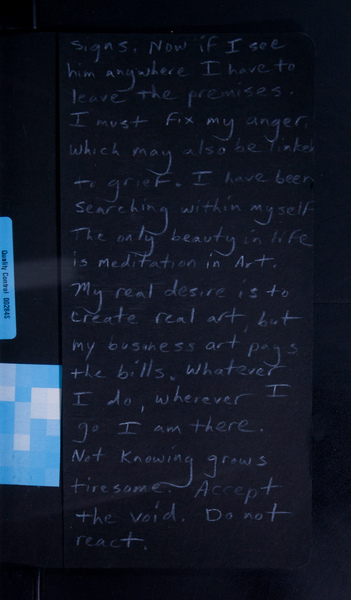 signs. Now if I see
him anywhere I have to
leave the premises.
I must fix my anger,
which may also be linked
to grief. I have been
searching within myself.
The only beauty in life
is meditation in Art.
My real desire is to
create real art, but
my business art pays
the bills. Whatever
I do, wherever I
go I am there.
Not Knowing grows
tiresome. Accept
the void. Do not
react.
Quality Control 002945